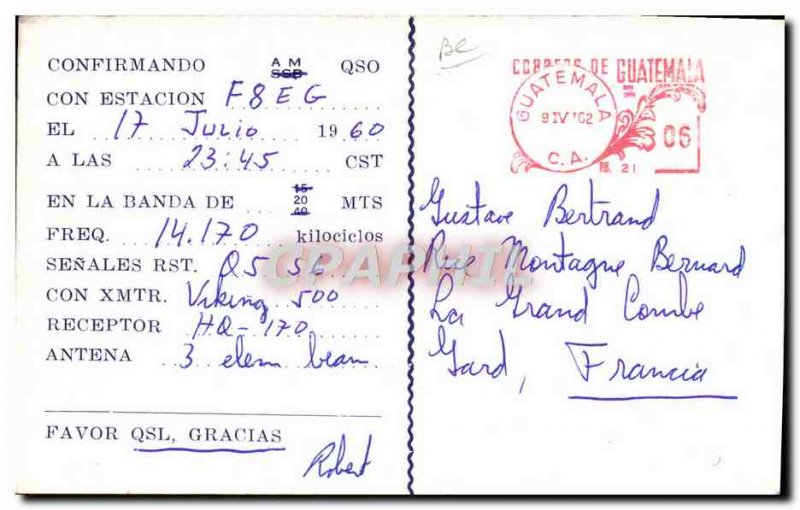 CONFIRMANDO AM SSB QSO
CON ESTACION F8EG
EL 17 Julio 1960
A LAS 23:45 CST
EN LA BANDA DE 15 20 40 MTS
FREQ. 14.170 kilociclos
SEÑALES RST. Q5 S6
CON XMTR. Viking 500
RECEPTOR HQ-170
ANTENA 3 elem beam
FAVOR QSL, GRACIAS
Robert
BC
CORREOS DE GUATEMALA
GUATEMALA
9 IV '62
C.A.
06
21
Gustave Bertrand
Rue Montagne Bernard
La Grand Combe
Gard, Francia
CPAPHIL